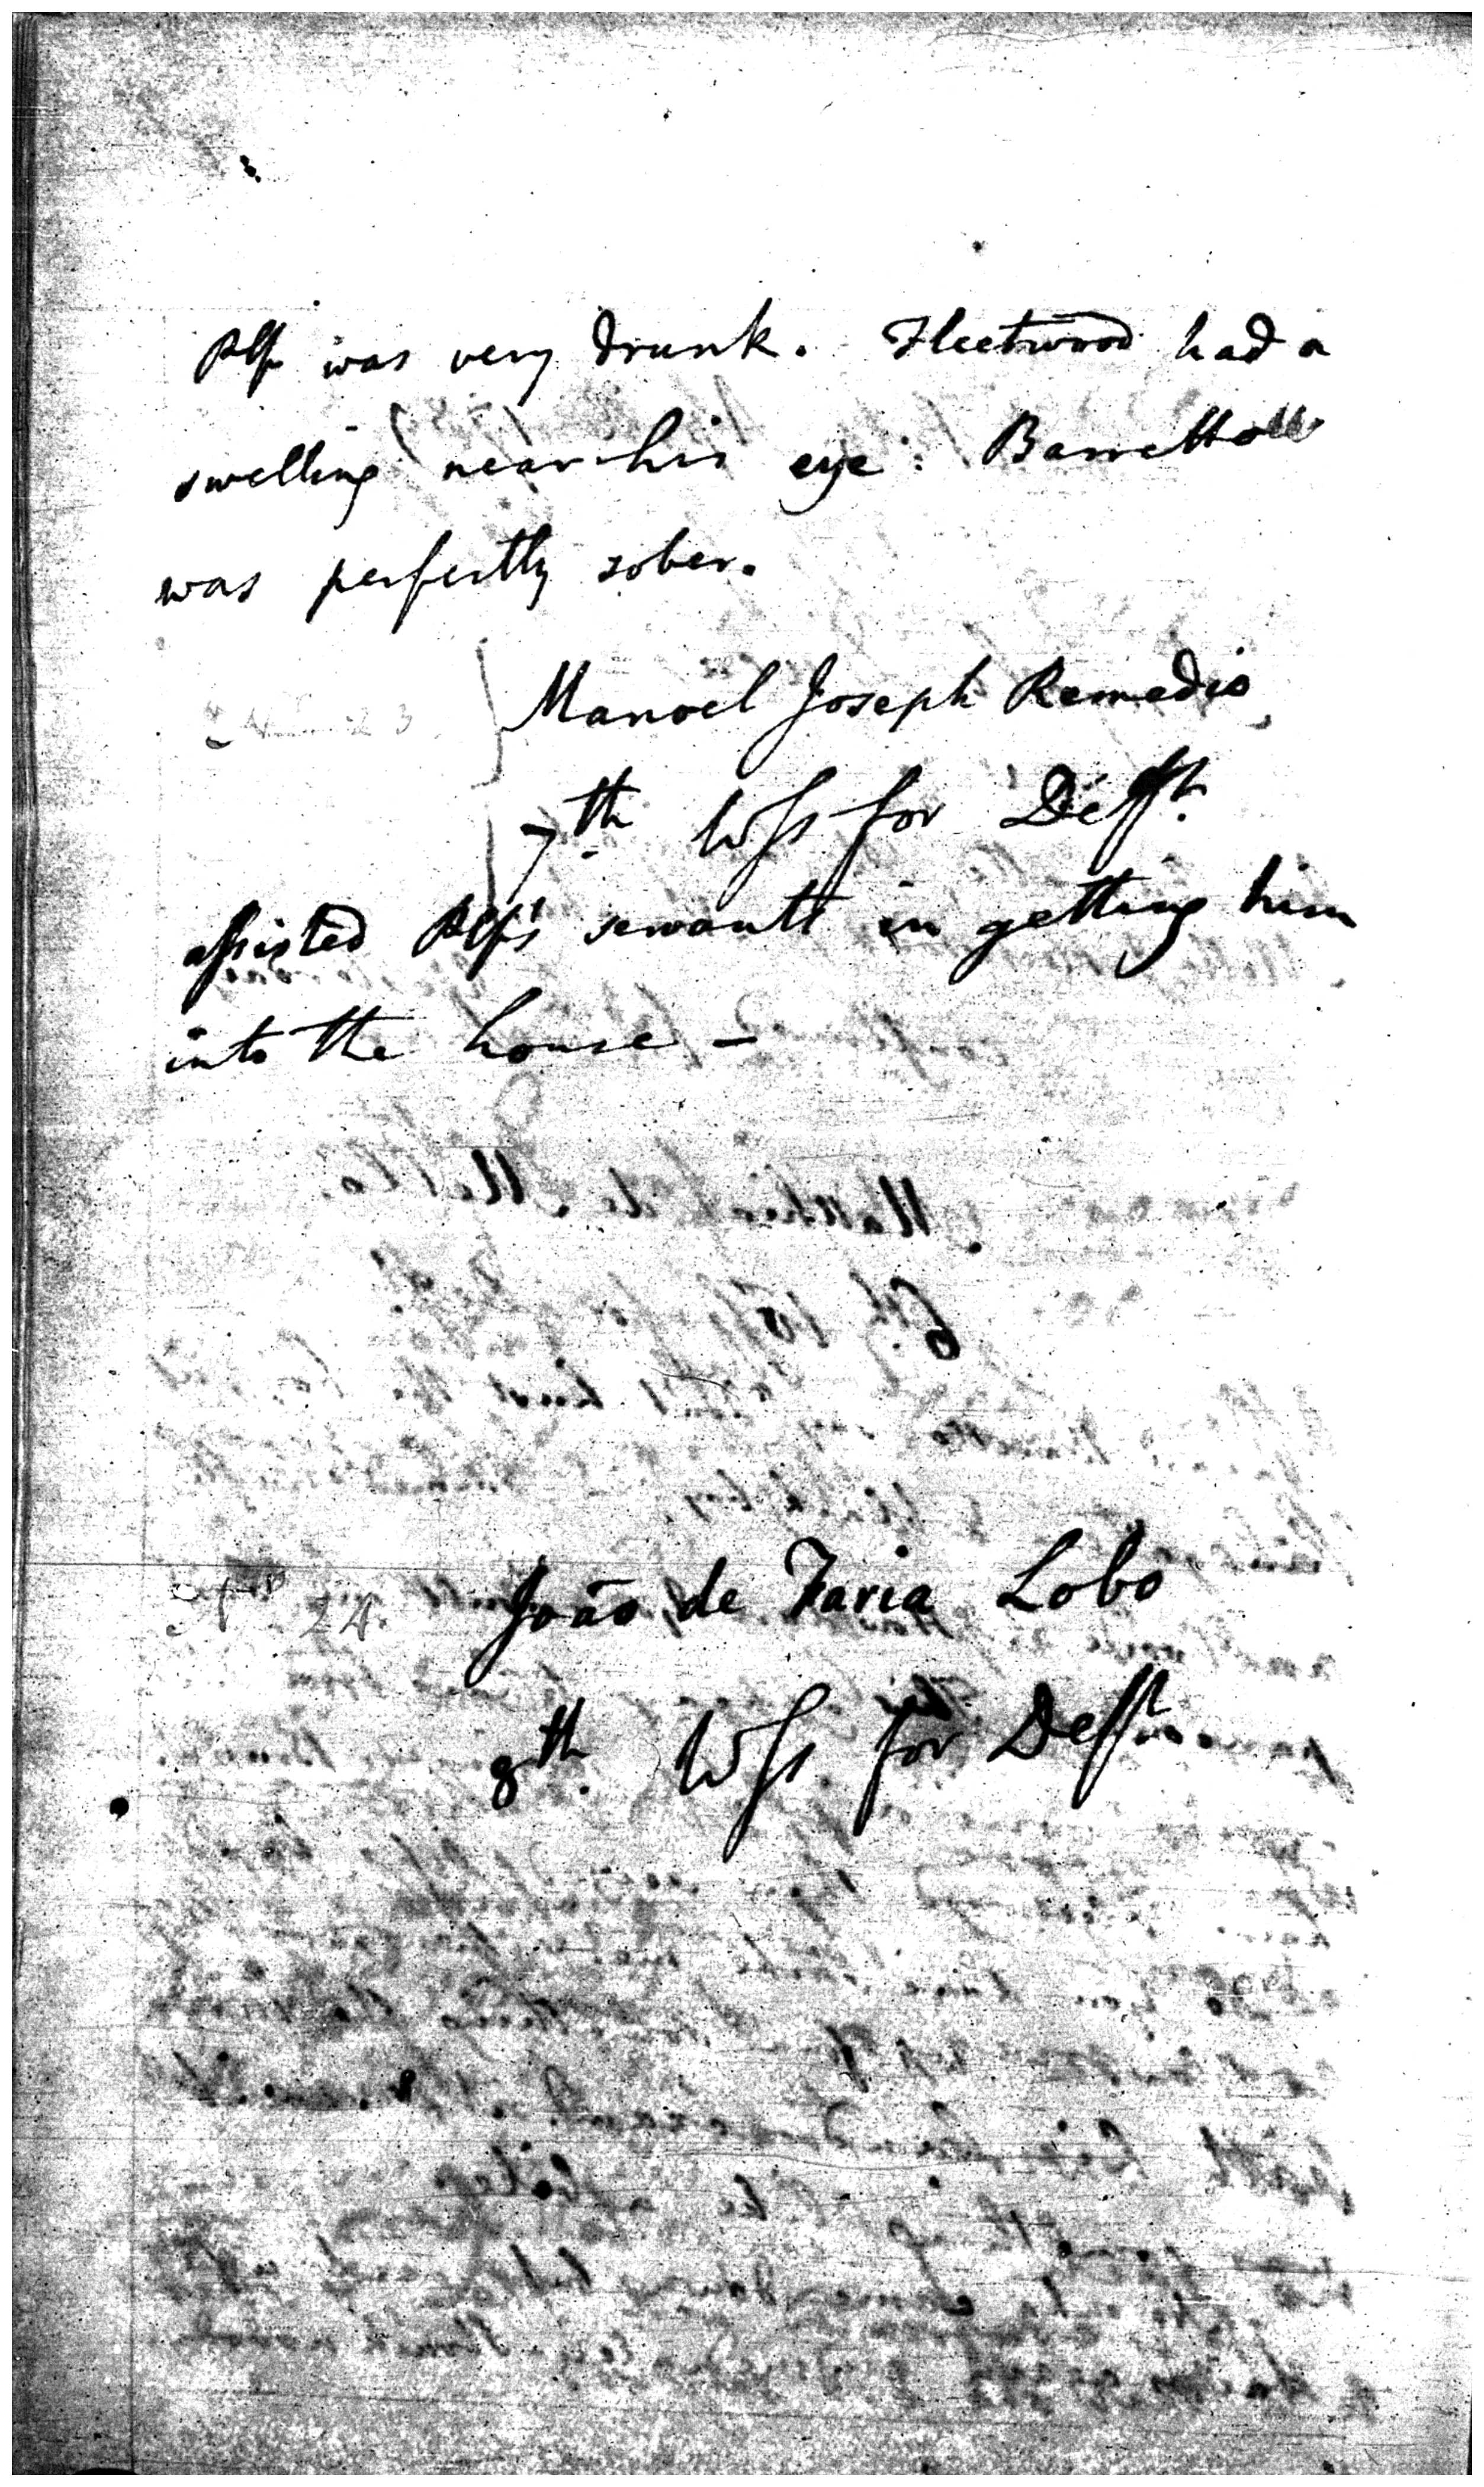 Plff was very drunk. Fleetwood had a
swelling near his eye: Barretto
was perfectly sober.
Manoel Joseph Remedio
7th Wss for Defft.
assisted Plff's servants in getting him
into the house -
João de Faria Lobo
24.
8th. Wss for Defft.